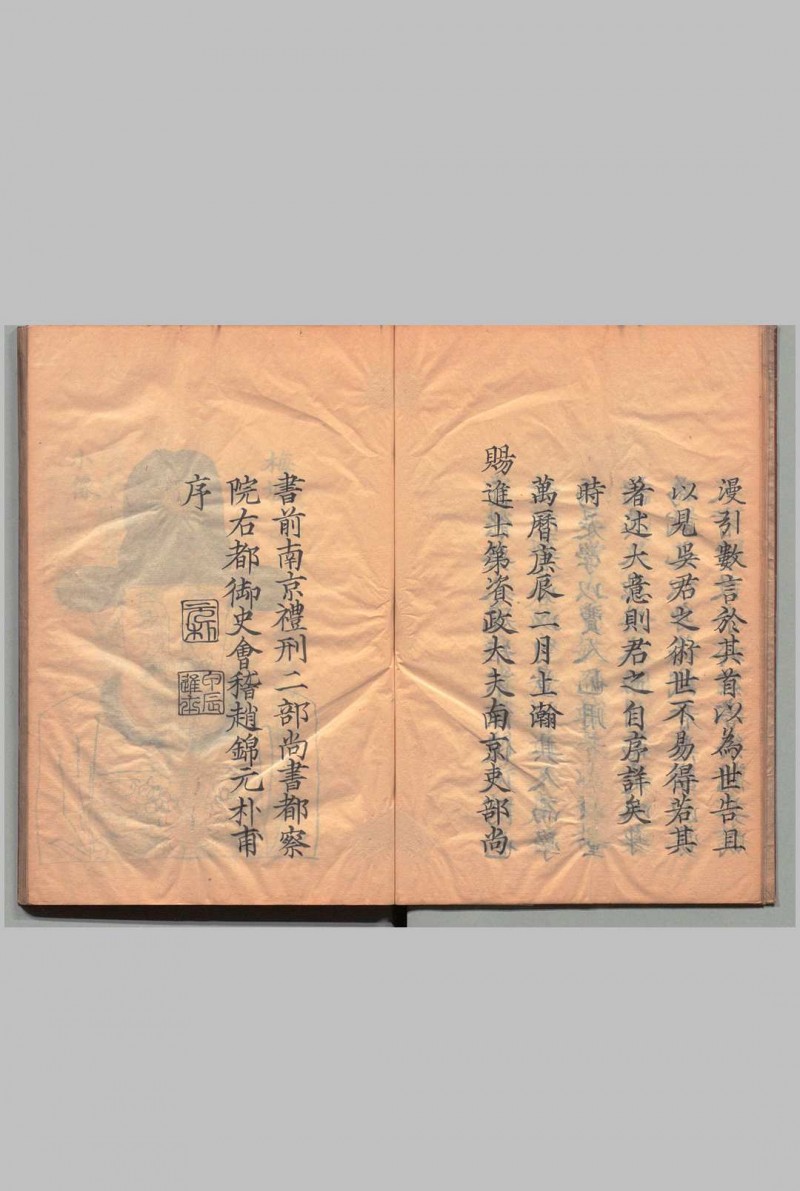 漫引數言於其首以為世告且
以見吳君之術世不易得若其
著述大意則君之自序詳矣
時
萬曆庚辰二月上澣
賜進士第資政大夫南京吏部尚
書前南京禮刑二部尚書都察
院右都御史會稽趙錦元朴甫
序
元朴
甲辰進士